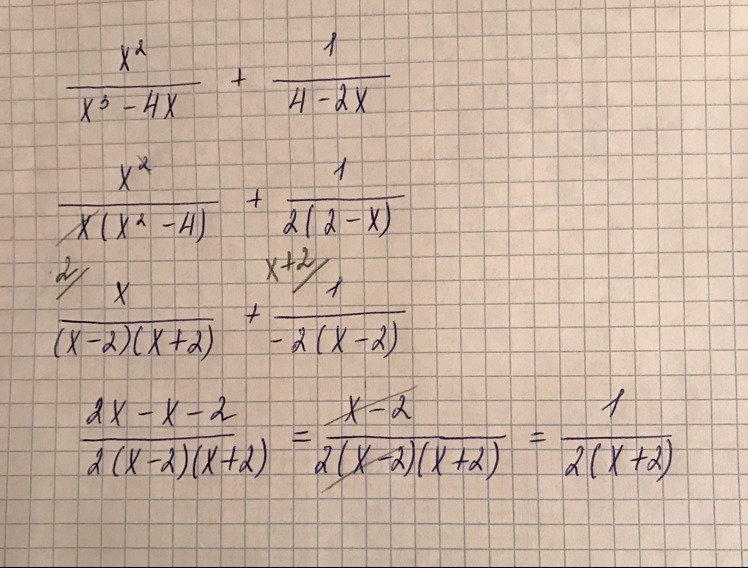 x²/(x³ - 4x) + 1/(4 - 2x)
x²/(x(x² - 4)) + 1/(2(2 - x))
2/ x+2/
x/((x-2)(x+2)) + 1/(-2(x-2))
(2x - x - 2)/(2(x-2)(x+2)) = (x-2)/(2(x-2)(x+2)) = 1/(2(x+2))